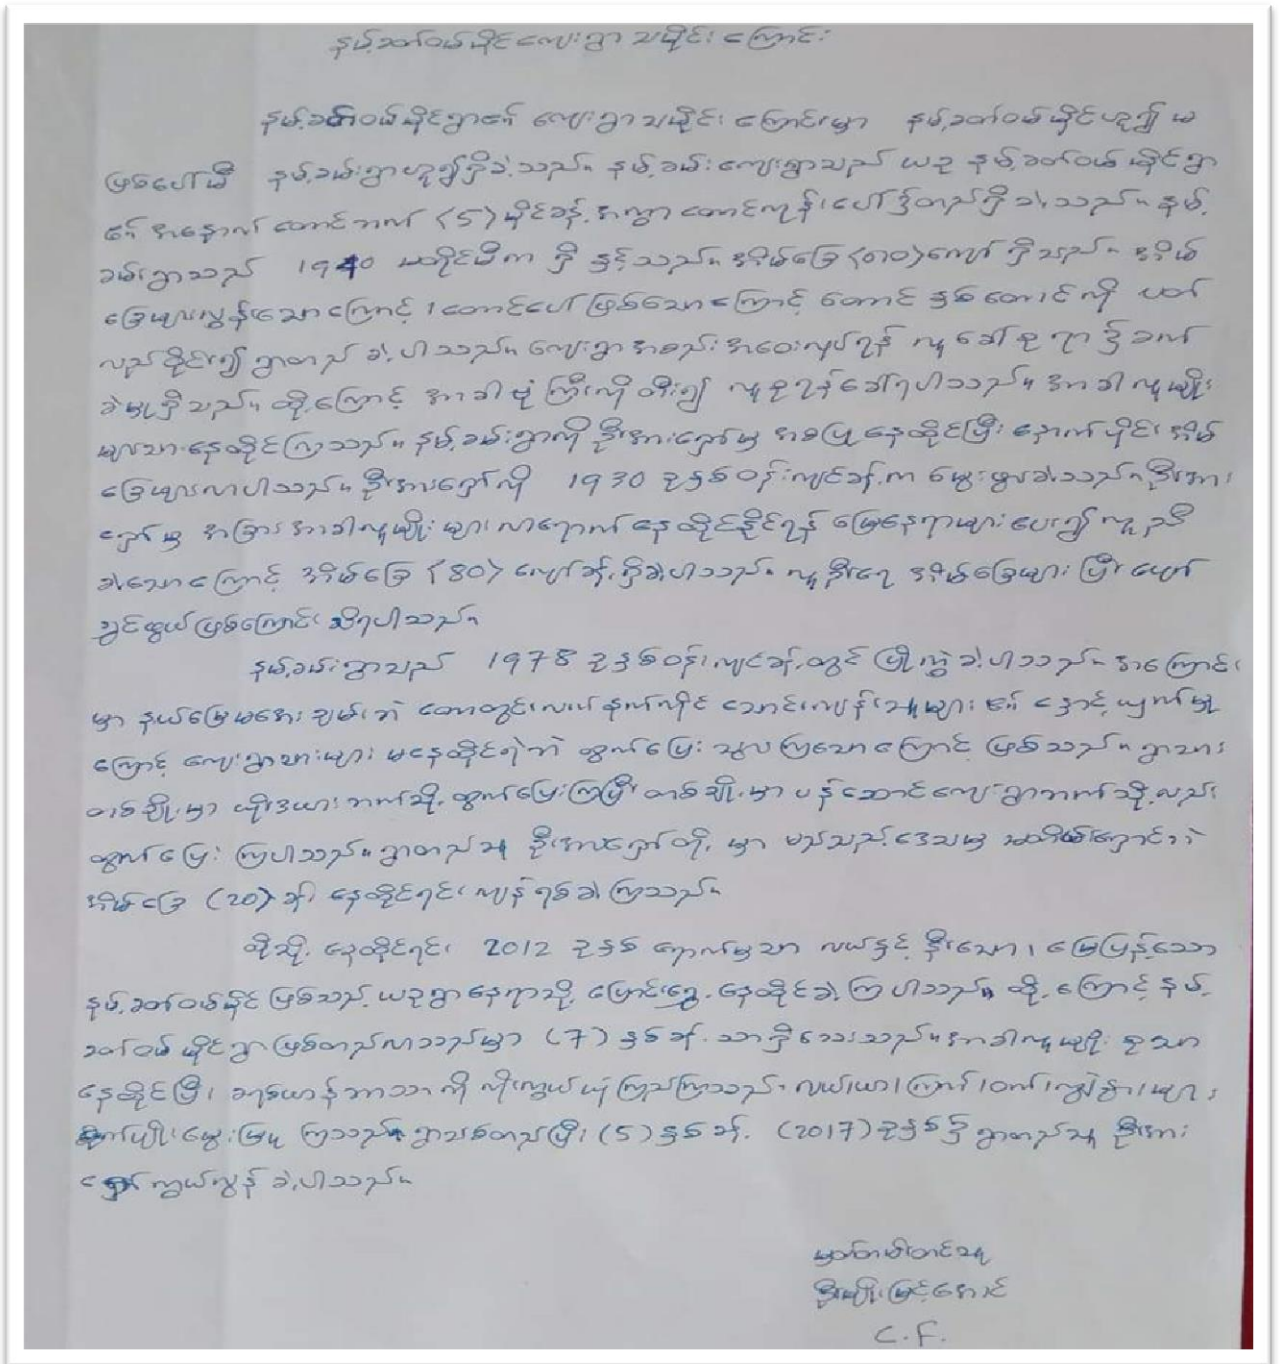 နမ့်ခတ်ဝမ်မိုင်ကျေးရွာ သမိုင်းကြောင်း
နမ့်ခတ်ဝမ်မိုင်ရွာ၏ ကျေးရွာသမိုင်းကြောင်းမှာ နမ့်ခတ်ဝမ်မိုင်ဟူ၍ မ
ဖြစ်ပေါ်မီ နမ့်ခမ်းရွာဟူ၍ရှိခဲ့သည်။ နမ့်ခမ်းကျေးရွာသည် ယခု နမ့်ခတ်ဝမ်မိုင်ရွာ
၏ အနောက်တောင်ဘက် (5) မိုင်ခန့်အကွာ တောင်ကုန်းပေါ်၌တည်ရှိခဲ့သည်။ နမ့်
ခမ်းရွာသည် 1940 မတိုင်မီက ရှိနှင့်သည်။ အိမ်ခြေ (၈၀) ကျော်ရှိသည်။ အိမ်
ခြေများလွန်းသောကြောင့်၊ တောင်ပေါ်ဖြစ်သောကြောင့် တောင်နှစ်တောင်ကို ပတ်
လည်ဝိုင်း၍ ရွာတည်ခဲ့ပါသည်။ ကျေးရွာအစည်းအဝေးလုပ်ရန် လူခေါ်စုရာ၌ ခက်
ခဲမှုရှိသည်။ ထို့ကြောင့် အာခါမုံကြီးကိုတီး၍ လူစုရန်ခေါ်ရပါသည်။ အာခါလူမျိုး
များသာနေထိုင်ကြသည်။ နမ့်ခမ်းရွာကို ဦးအားရှော်မှ အစပြုနေထိုင်ပြီး နောက်ပိုင်း အိမ်
ခြေများလာပါသည်။ ဦးအားရှော်ကို 1930 ခုနှစ်ဝန်းကျင်ခန့်က မွေးဖွားခဲ့သည်။ ဦးအား
ရှော်မှ အခြားအာခါလူမျိုးများ လာရောက်နေထိုင်နိုင်ရန် မြေနေရာများပေး၍ ကူညီ
ခဲ့သောကြောင့် အိမ်ခြေ (80) ကျော်ခန့်ရှိခဲ့ပါသည်။ လူဦးရေ အိမ်ခြေများပြီး ပျော်
ရွှင်ဖွယ်ဖြစ်ကြောင်း သိရပါသည်။
နမ့်ခမ်းရွာသည် 1978 ခုနှစ်ဝန်းကျင်ခန့်တွင် ပြိုကွဲခဲ့ပါသည်။ အကြောင်း
မှာ နယ်မြေမအေးချမ်းဘဲ တောတွင်းလက်နက်ကိုင် သောင်းကျန်းသူများ၏ နှောင့်ယှက်မှု
ကြောင့် ကျေးရွာသားများ မနေထိုင်ရဲဘဲ ထွက်ပြေးသွားကြသောကြောင့် ဖြစ်သည်။ ရွာသား
တစ်ချို့မှာ ယိုးဒယားဘက်သို့ထွက်ပြေးကြပြီး တစ်ချို့မှာ ပန်ဆောင်ကျေးရွာဘက်သို့လည်း
ထွက်ပြေးကြပါသည်။ ရွာတည်သူ ဦးအားရှော်တို့မှာ မည်သည့်ဒေသမှ မတိမ်းရှောင်ဘဲ
အိမ်ခြေ (20) ခန့် နေထိုင်ရင်း ကျန်ရစ်ခဲ့ကြသည်။
ထိုသို့ နေထိုင်ရင်း 2012 ခုနှစ် ရောက်မှသာ လယ်နှင့်နီးသော၊ မြေပြန့်သော
နမ့်ခတ်ဝမ်မိုင်ဖြစ်သည့် ယခုရွာနေရာသို့ ပြောင်းရွှေ့နေထိုင်ခဲ့ကြပါသည်။ ထို့ကြောင့် နမ့်
ခတ်ဝမ်မိုင်ရွာဖြစ်တည်လာသည်မှာ (7) နှစ်ခန့်သာရှိသေးသည်။ အာခါလူမျိုးစုသာ
နေထိုင်ပြီး ခရစ်ယာန်ဘာသာကို ကိုးကွယ်ယုံကြည်ကြသည်။ လယ်၊ယာ၊ကြက်၊ဝက်၊ကျွဲ၊နွားများ
စိုက်ပျိုးမွေးမြူကြသည်။ ရွာသစ်တည်ပြီး (5) နှစ်ခန့် (2017) ခုနှစ်၌ ရွာတည်သူ ဦးအား
ရှော်ကွယ်လွန်ခဲ့ပါသည်။
မှတ်တမ်းတင်သူ
ဦးမျိုးမြင့်အောင်
C.F.